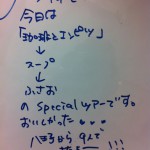 今日は
「珈琲とエンピツ」
↓
スープ
↓
ふさお
のspecialツアーです。
おいしかった・・・
八王子から 9人で
!!!